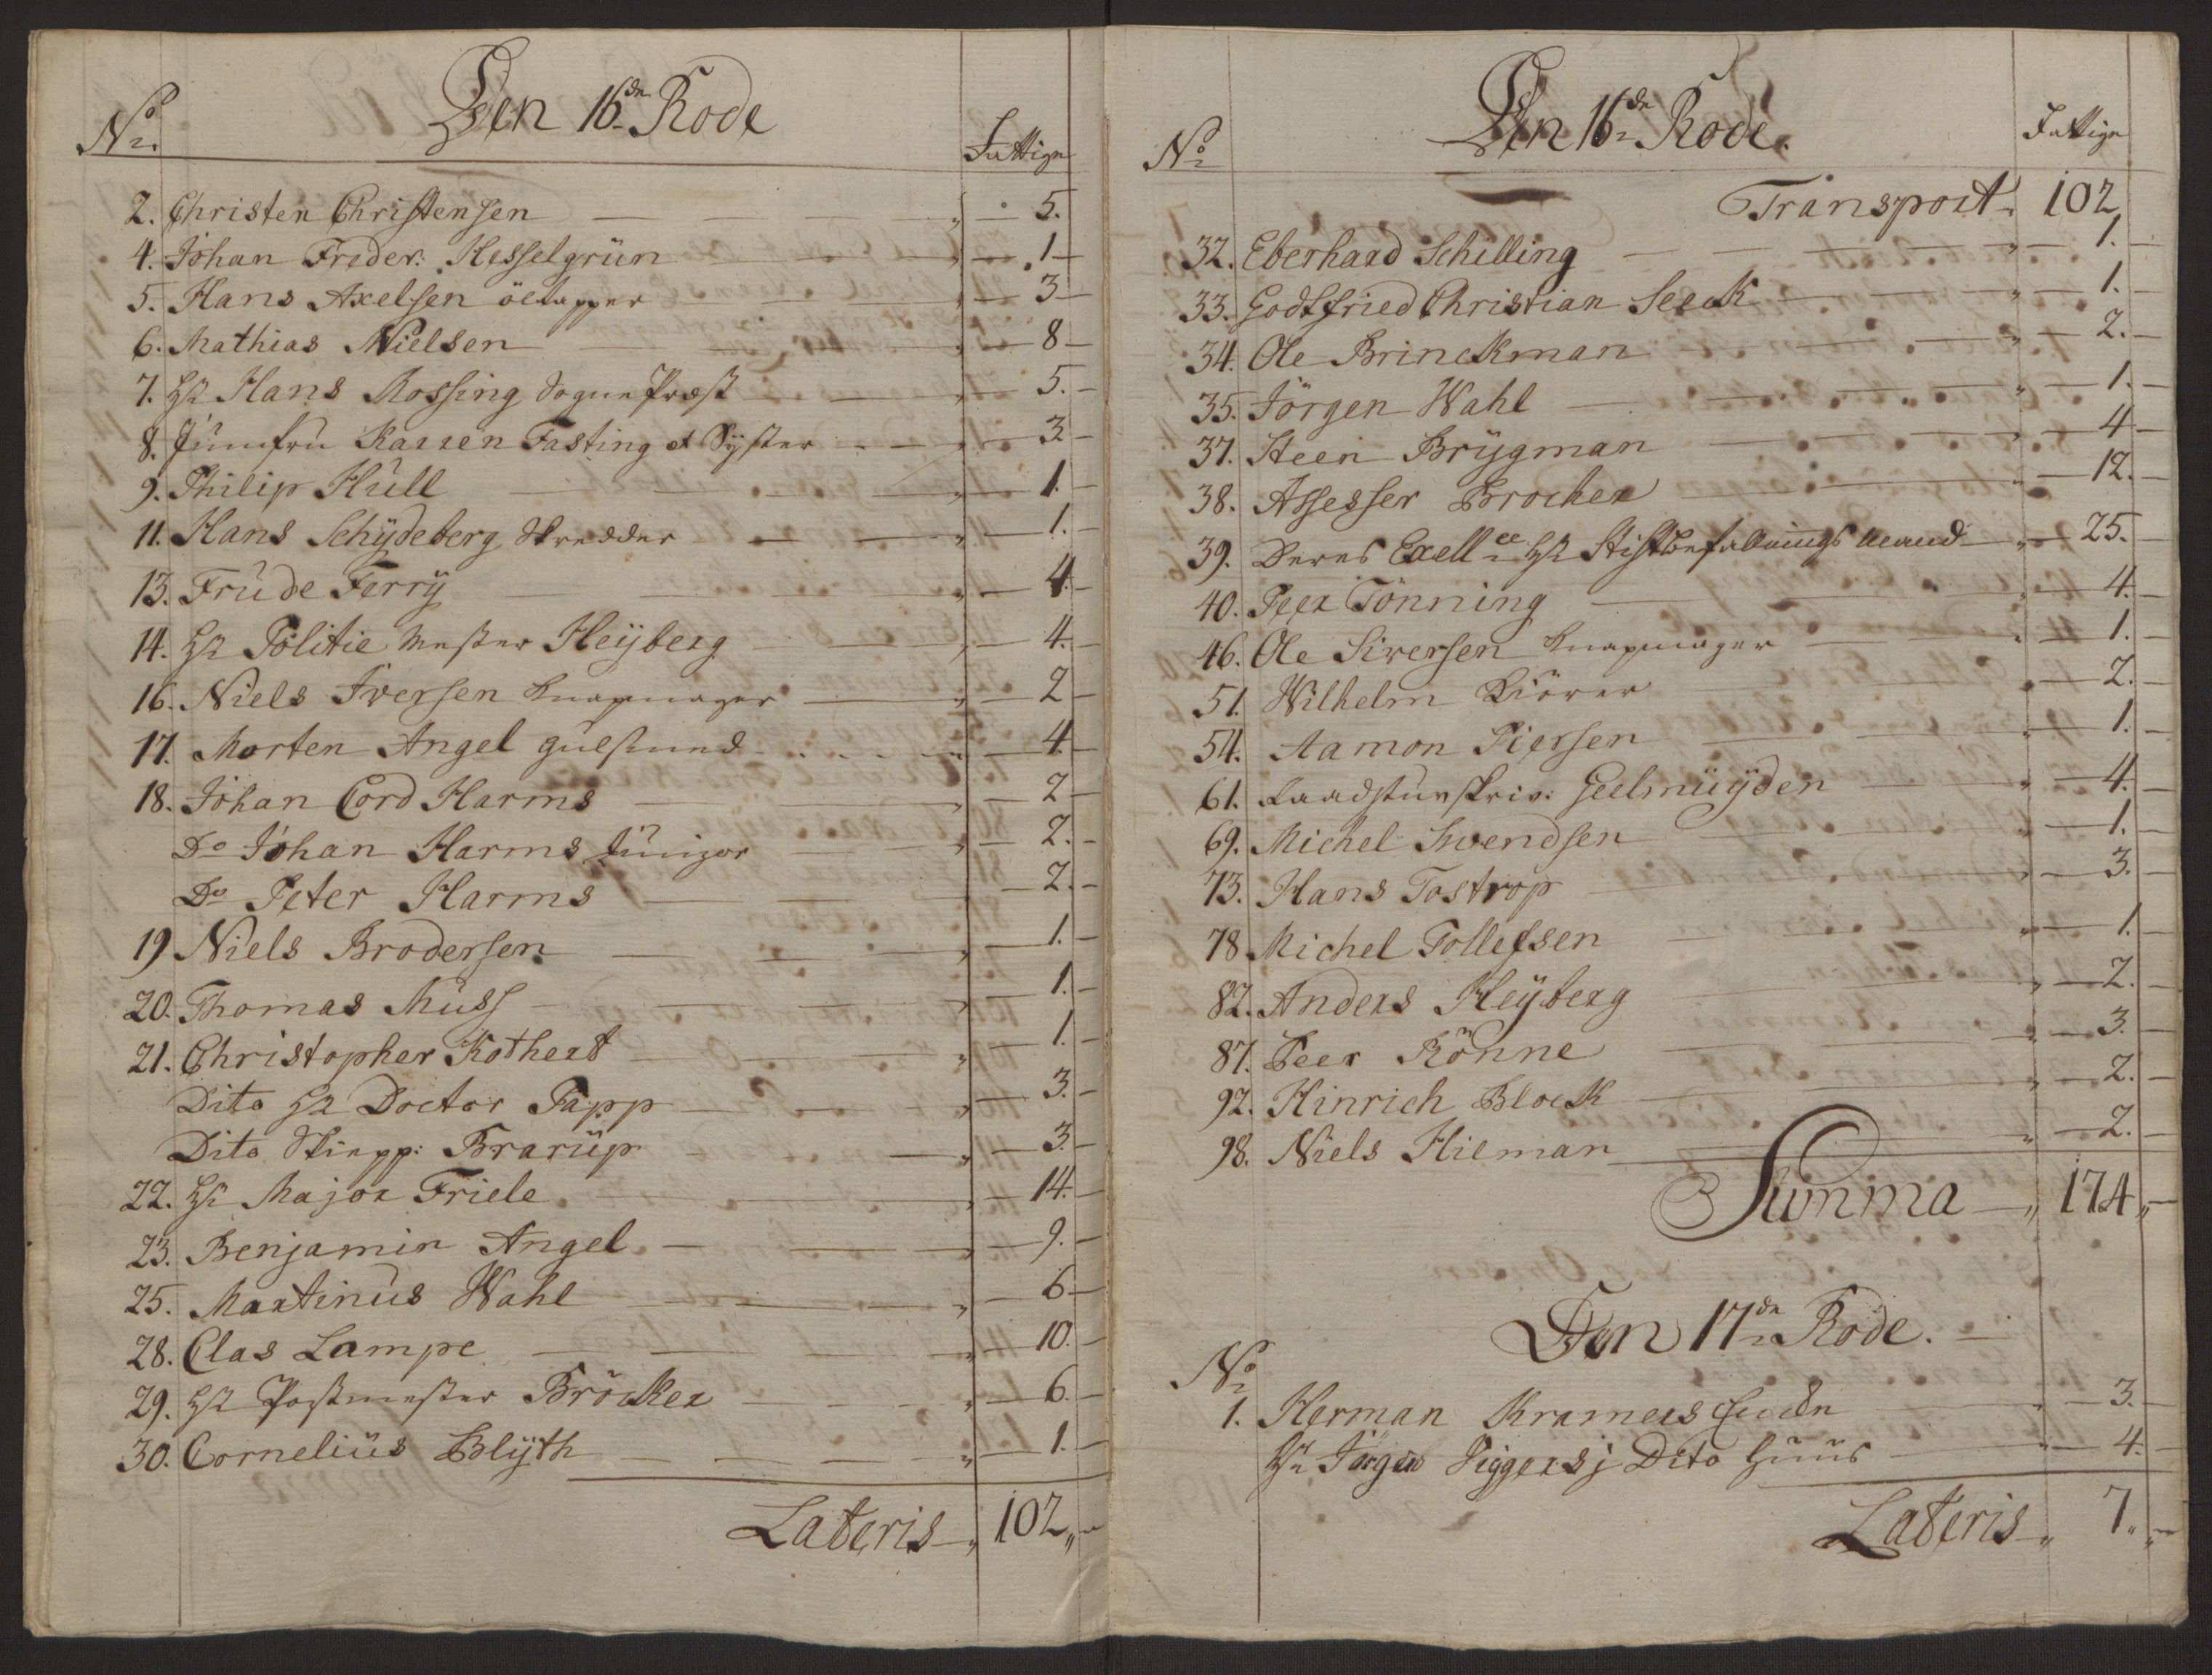 Den 16de Rode
No
Fattige
2. Christen Christensen 5.
4. Johan Freder: Hesselgrün 1
5. Hans Axelsen öltapper 3
6. Mathias Nielsen 8
7. Hr Hans Mossing Sogne Præst 5.
8. Jumfru Karren Fasting et Syster 3
9. Philip Hüll 1.
11. Hans Schÿdeberg Skredder 1.
13. Frú de Ferrÿ 4.
14. Hr Politie Mester Heÿberg 4.
16. Niels Iversen Knapmager 2
17. Morten Angel gulsmed 4
18. Johan Cord Harms 2
Do Johan Harms Junjor 2.
Do Peter Harms 2.
19 Niels Brodersen 1.
20. Thomas Müss 1.
21. Christopher Kothert 1.
Dito Hr Doctor Papp 3.
Dito Skipp: Brarüp 3.
22. Hr Major Friele 14.
23. Benjamin Angel 9.
25. Martinus Wahl 6
28. Clas Lampe 10.
29. Hr Postmester Bröcker 6.
30. Cornelius Blÿth 1.
Lateris 102
Den 16de Rode.
No
Fattige
Transport 102
32. Eberhard Schilling 1.
33. Godtfried Christian Seeck 1.
34. Ole Brinckman 2.
35. Jörgen Wahl 1.
37. Steen Brÿgman 4
38. Assesser Brocher 12.
39. Deres Exellce Hr Stiftbefallnings Mand 25.
40. Peer Tönning 4.
46. Ole Siversen Knapmager 1.
51. Wilhelm Kiörer 2.
54. Aamon Piersen 1.
61. Raadstuskriv: Geelmuÿden 4.
69. Michel Svendsen 1.
73. Hans Tostrop 3.
78 Michel Tollefsen 1.
82. Anders Heÿberg 2.
87. Peer Rönne 3.
92. Hinrich Block 2.
98. Niels Hieman 2.
Summa 174
Den 17de Rode.
No
1. Herman Kramers Encke 3.
Hr Jörgen Viggers i Dito Huus 4.
Lateris 7.